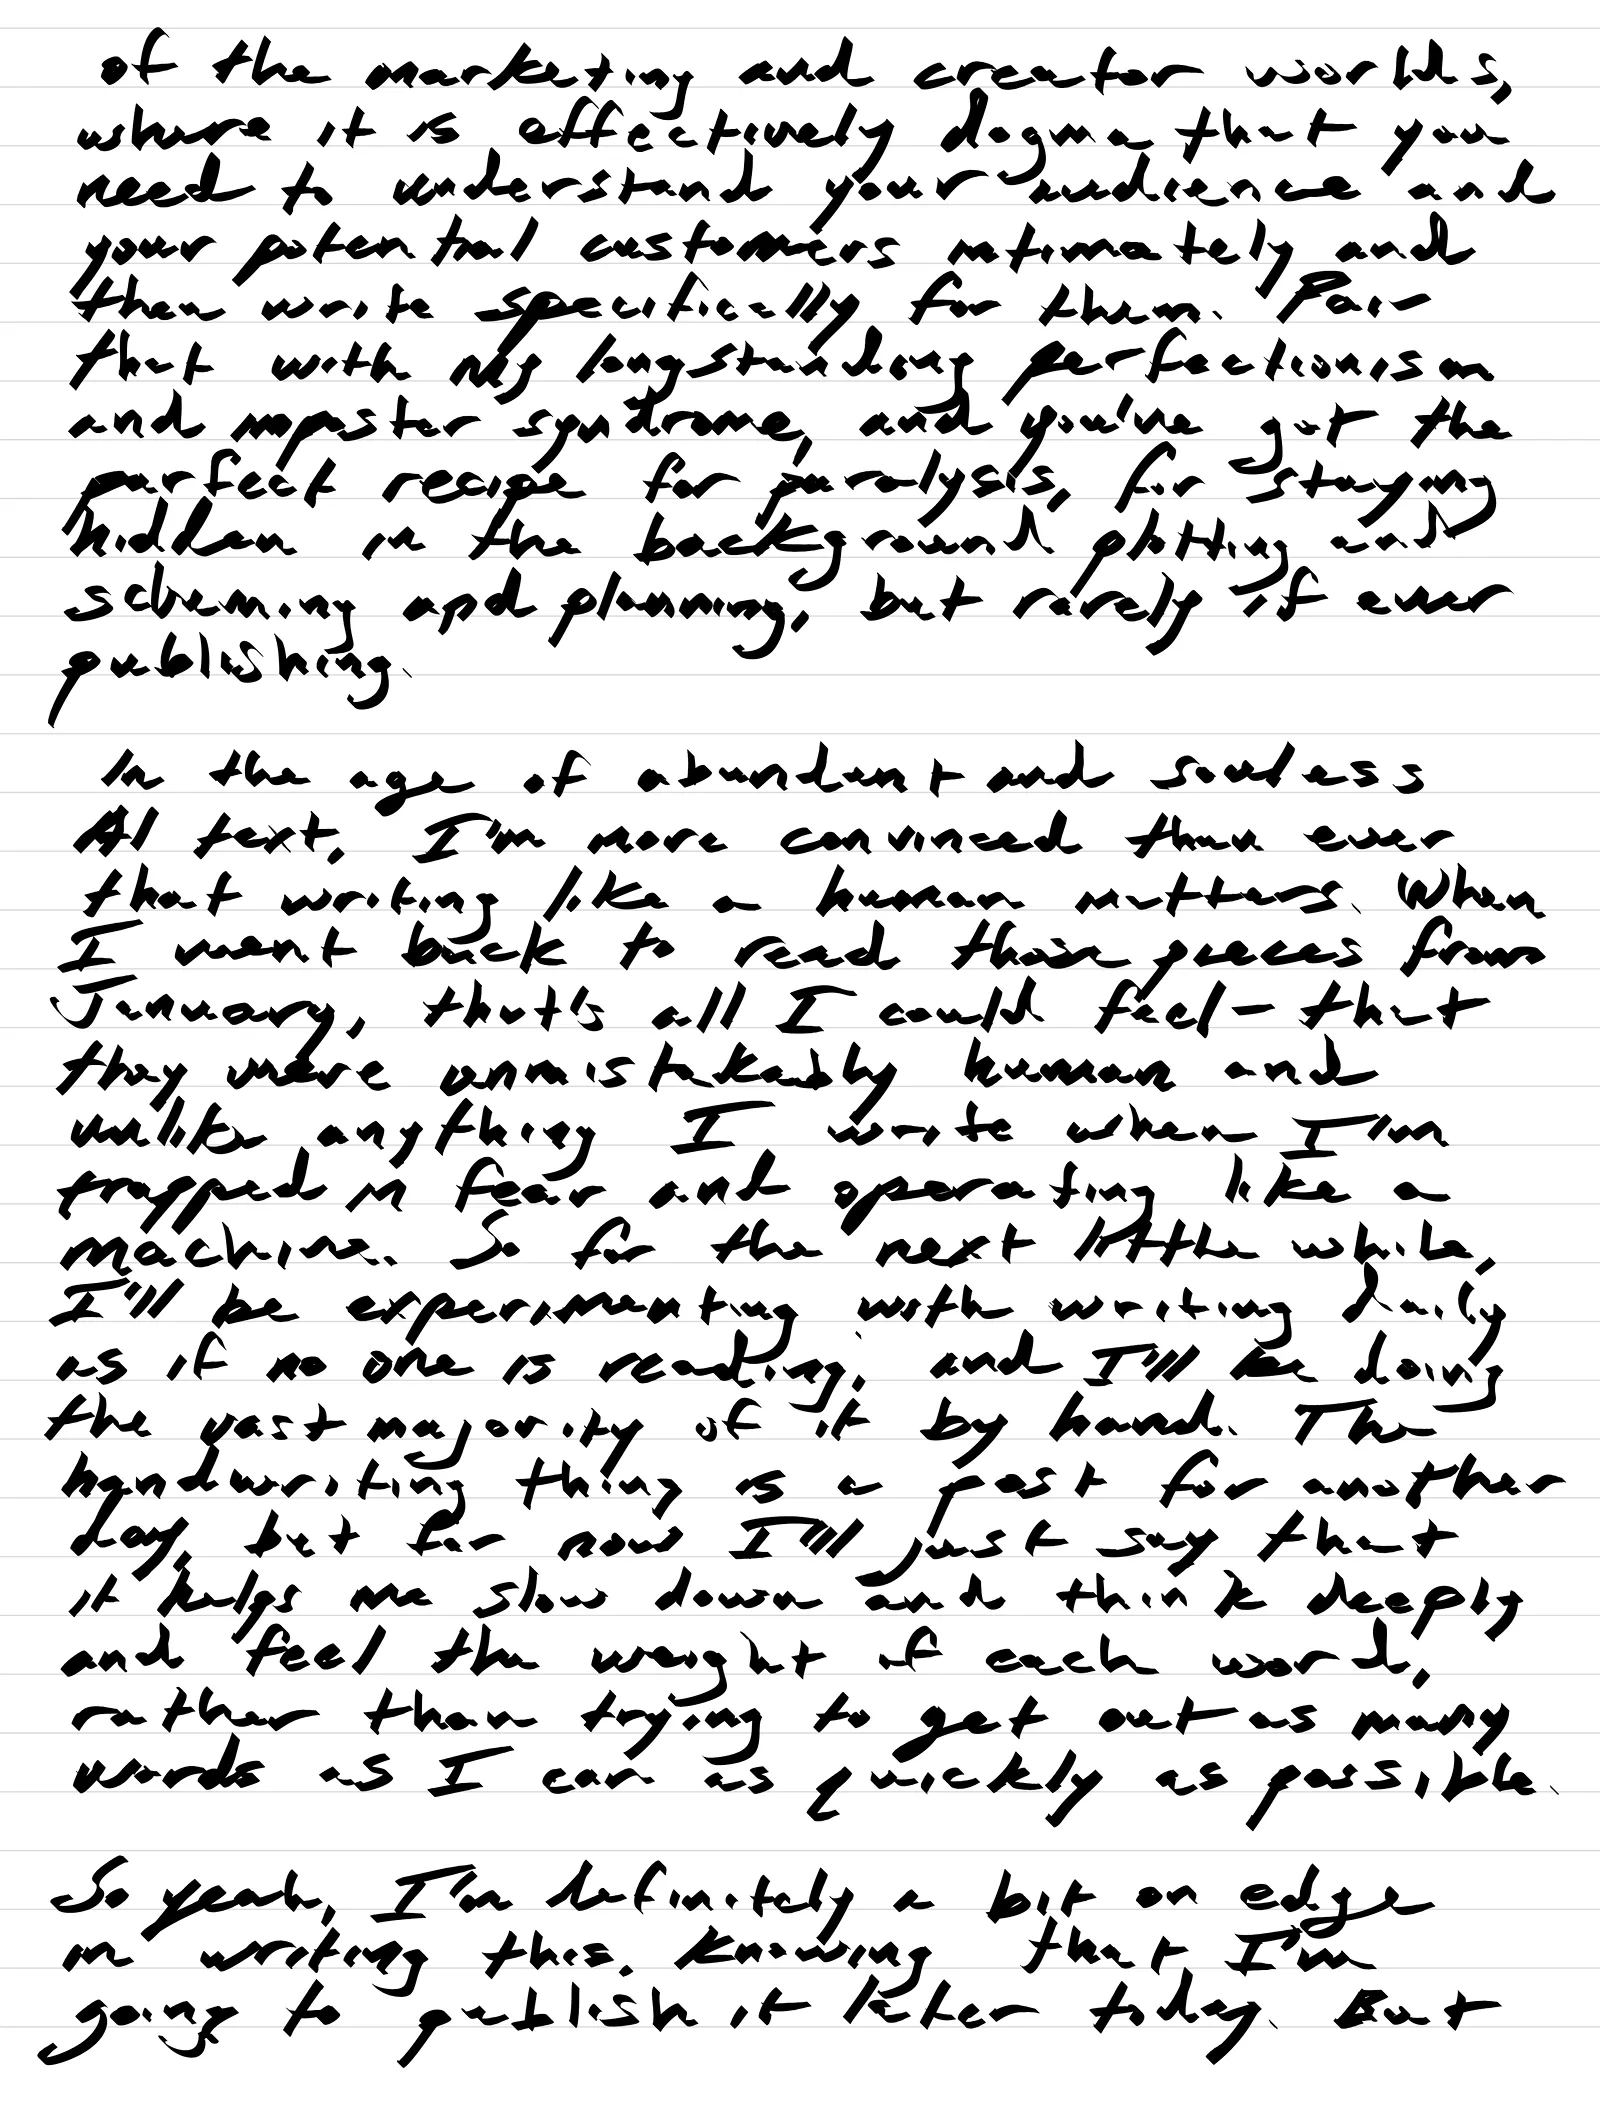 of the marketing and creator worlds,
where it is effectively dogma that you
need to understand your audience and
your potential customers intimately and
then write specifically for them. Pair
that with my longstanding perfectionism
and imposter syndrome, and you've got the
perfect recipe for paralysis, for staying
hidden in the background plotting and
scheming and planning, but rarely if ever
publishing.
In the age of abundant and soulless
AI text, I'm more convinced than ever
that writing like a human matters. When
I went back to read those pieces from
January, that's all I could feel - that
they were unmistakably human and
unlike anything I write when I'm
trapped in fear and operating like a
machine. So for the next little while,
I'll be experimenting with writing daily
as if no one is reading, and I'll be doing
the vast majority of it by hand. The
handwriting thing is a post for another
day, but for now I'll just say that
it helps me slow down and think deeply
and feel the weight of each word,
rather than trying to get out as many
words as I can as quickly as possible.
So yeah, I'm definitely a bit on edge
in writing this. Knowing that I'm
going to publish it later today. But